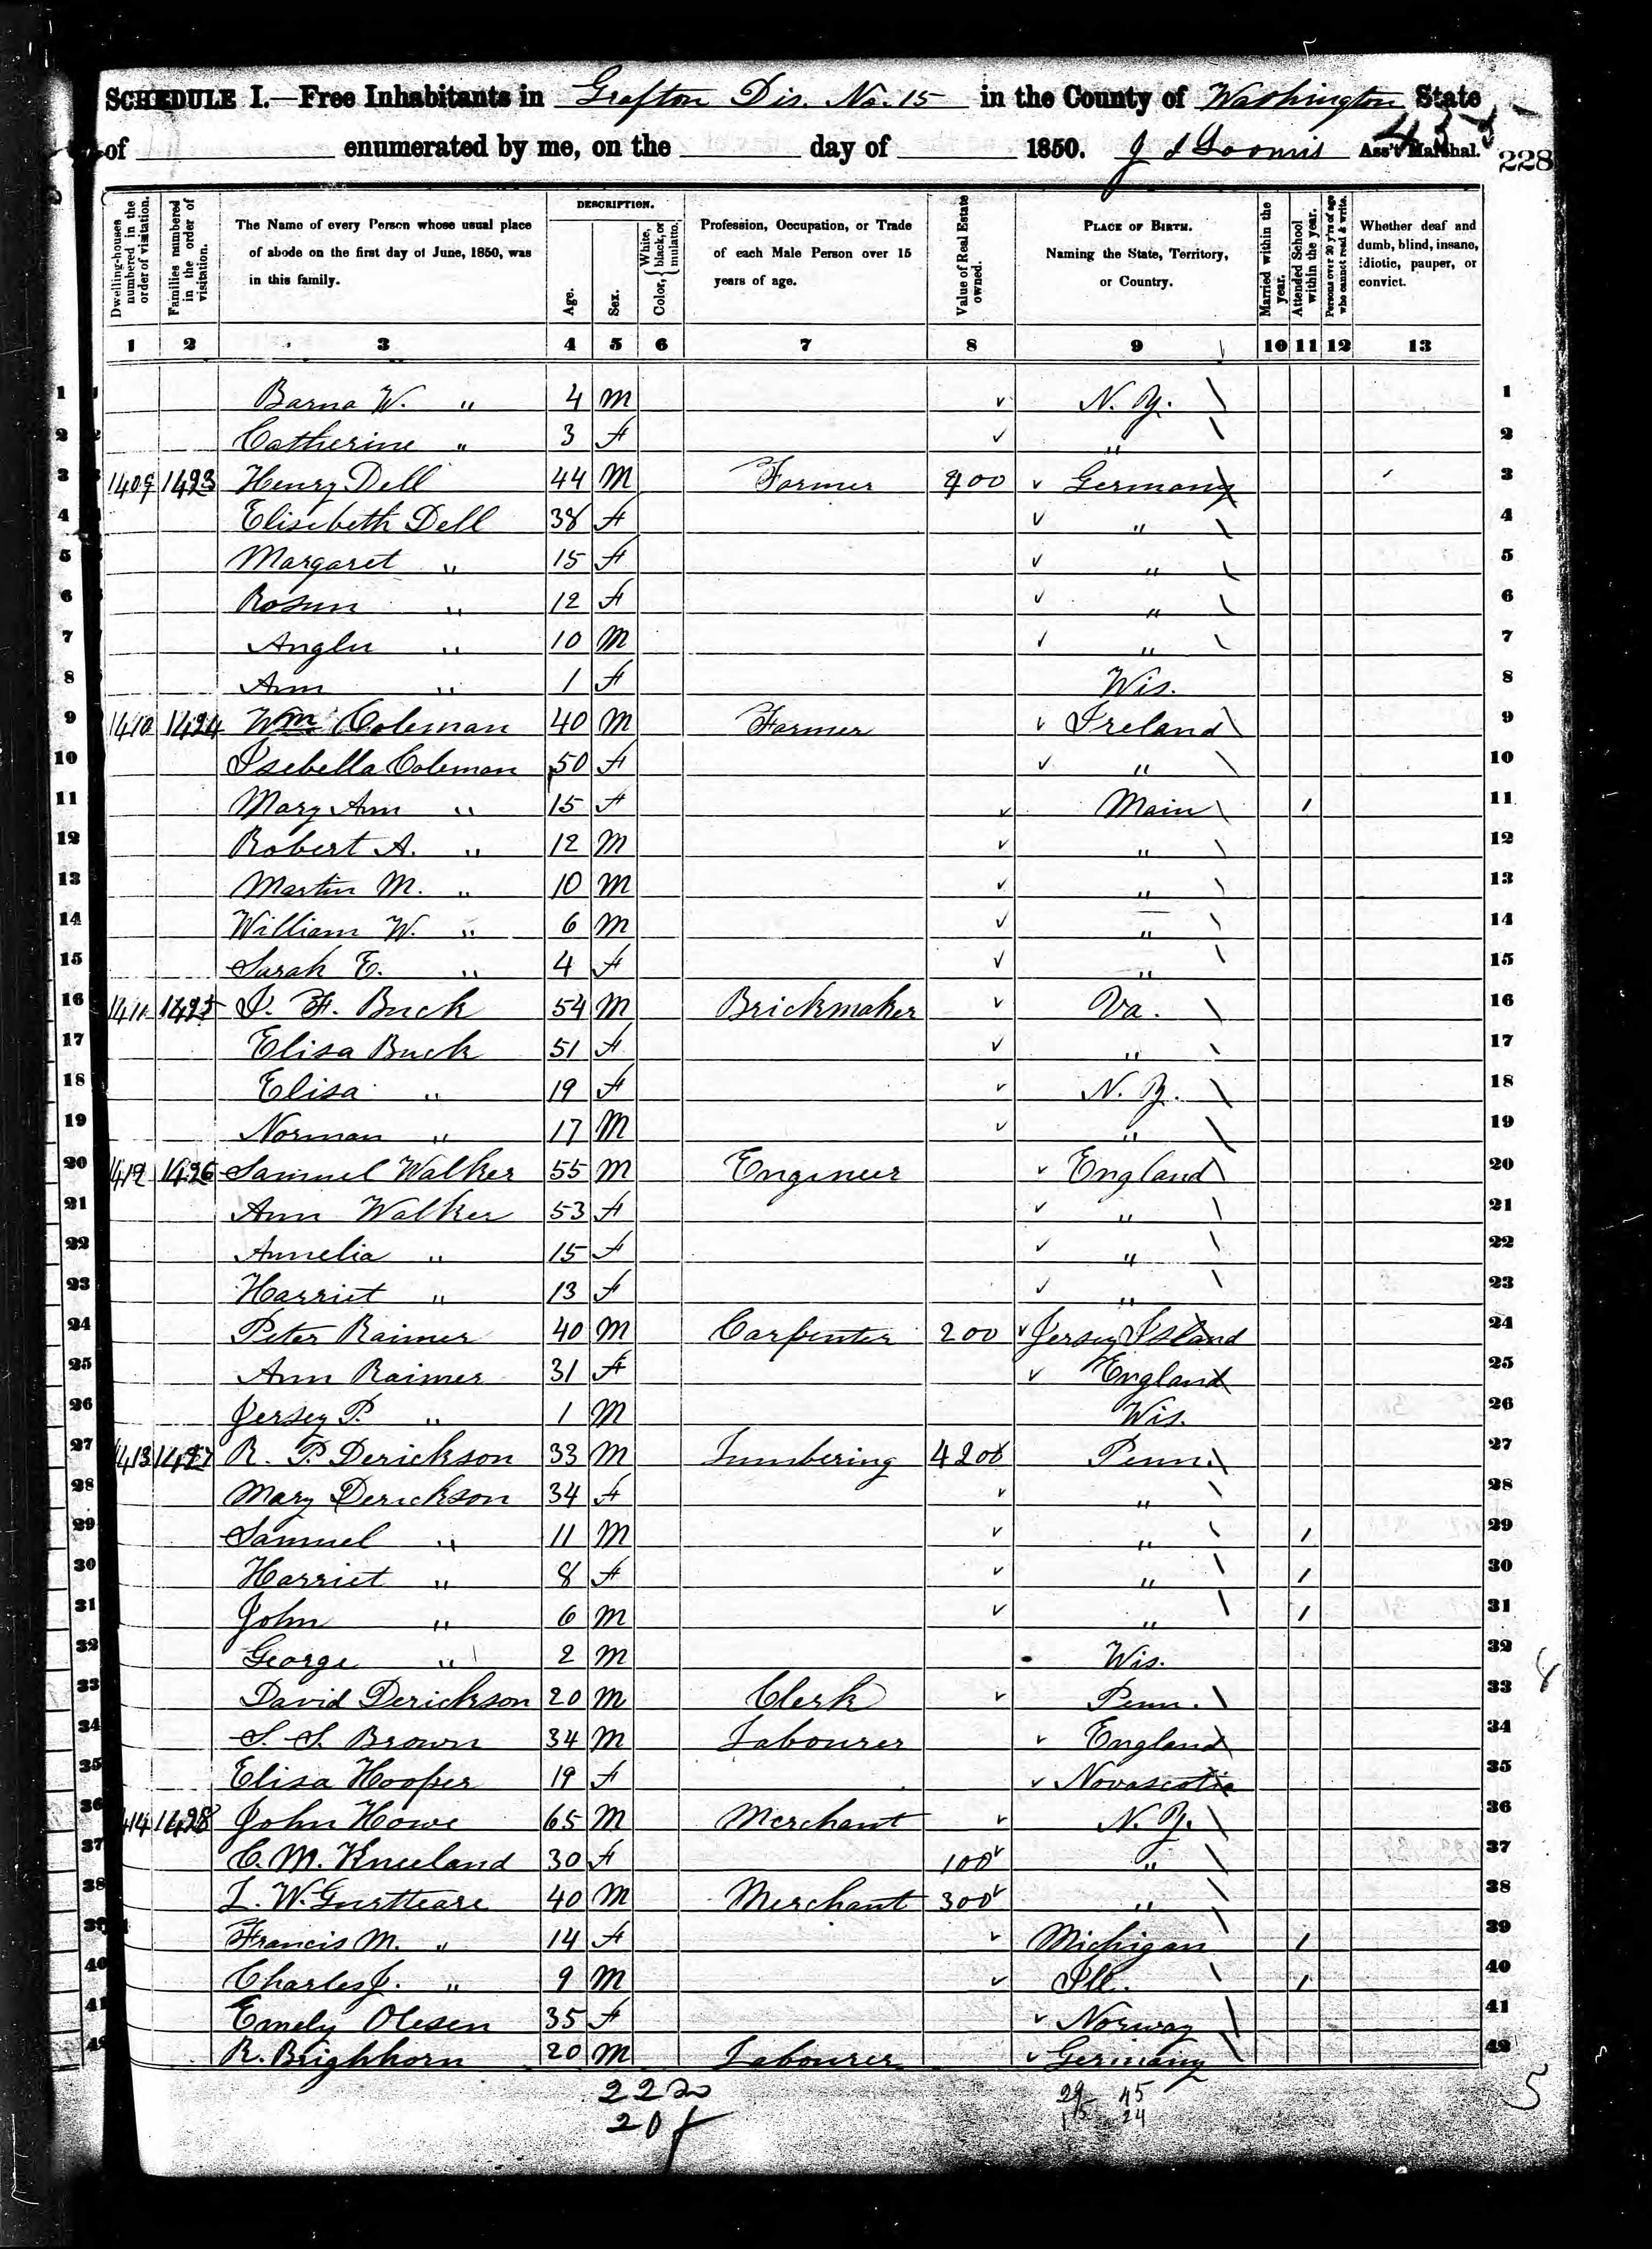 SCHEDULE I.—Free Inhabitants in Grafton Dis. No. 15 in the County of Washington State
of enumerated by me, on the day of 1850. J Loomis Ass't Marshal. 228
Dwelling-houses numbered in the order of visitation.
Families numbered in the order of visitation.
The Name of every Person whose usual place of abode on the first day of June, 1850, was in this family.
DESCRIPTION.
Age.
Sex.
Color, { White, black, or mulatto.
Profession, Occupation, or Trade of each Male Person over 15 years of age.
Value of Real Estate owned.
PLACE OF BIRTH. Naming the State, Territory, or Country.
Married within the year.
Attended School within the year.
Persons over 20 y'rs of age who cannot read & write.
Whether deaf and dumb, blind, insane, idiotic, pauper, or convict.
1 2 3 4 5 6 7 8 9 10 11 12 13
1 Barna W. " 4 M N. Y. 1
2 Catherine " 3 F " 2
3 1409 1423 Henry Dell 44 M Farmer 400 Germany 3
4 Elisebeth Dell 38 F " 4
5 Margaret " 15 F " 5
6 Rosun " 12 F " 6
7 Anglu " 10 M " 7
8 Ann " 1 F Wis. 8
9 1410 1424 Wm Coleman 40 M Farmer Ireland 9
10 Isebella Coleman 50 F " 10
11 Mary Ann " 15 F Main 1 11
12 Robert A. " 12 M " 12
13 Martin M. " 10 M " 13
14 William W. " 6 M " 14
15 Sarah E. " 4 F " 15
16 1411 1425 I. F. Buck 54 M Brickmaker Va. 16
17 Elisa Buck 51 F " 17
18 Elisa " 19 F N. Y. 18
19 Norman " 17 M " 19
20 1412 1426 Samuel Walker 55 M Engineer England 20
21 Ann Walker 53 F " 21
22 Amelia " 15 F " 22
23 Harriet " 13 F " 23
24 Peter Raimer 40 M Carpenter 200 Jersey Island 24
25 Ann Raimer 31 F England 25
26 Jersey P. " 1 M Wis. 26
27 1413 1427 R. P. Derickson 33 M Lumbering 4200 Penn. 27
28 Mary Derickson 34 F " 28
29 Samuel " 11 M " 1 29
30 Harriet " 8 F " 1 30
31 John " 6 M " 1 31
32 George " 2 M Wis. 32
33 David Derickson 20 M Clerk Penn. 33
34 S. S. Brown 34 M Labourer England 34
35 Elisa Hooper 19 F Novascotia 35
36 1414 1428 John Howe 65 M Merchant N. Y. 36
37 C. M. Kneeland 30 F 100 " 37
38 L. W. 40 M Merchant 300 " 38
39 Francis M. " 14 F Michigan 1 39
40 Charles J. " 9 M Ill. 1 40
41 Emely Olesen 35 F Norway 41
42 R. Brighhorn 20 M Labourer Germany 42
22 m 29 45
20 f 15 24
5